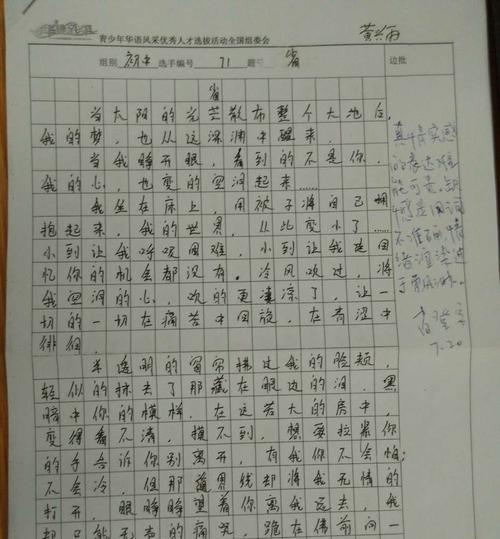 黄炳
青少年华语风采优秀人才选拔活动全国组委会
组别 初中 选手编号 71 题号 省 边批
省
当太阳的光芒散布整个大地后,
我的梦,也从远深渊中醒来.
当我睁开眼,看到的不是你.
我的心,也变的空洞起来……
我坐在床上,用被子将自己拥
抱起来,我的世界,从此变小了……
小到让我呼吸困难,小到让我连回
忆你的机会都没有.冷风吹过,将
我空洞的心,吹的更凄凉了,让一
切的一切在痛苦中回放,在青涩中
徘徊.
半透明的窗帘拂过我的脸颊,
轻似的抹去了那藏在眼边的泪.黑
暗中你的模样,在这若大的房中,
变得看不清,摸不到,想要拉紧你
的手告诉你别离开,有我你不会怕;
不会冷,但那结界绕却将我无情的
打开,眼睁睁望着你离我远去,我
却只能无声的痛哭,跪在佛前问一
真情实感
的表达难
能可贵.
感是用词
不准确,情
绪渲染过
于
7.20